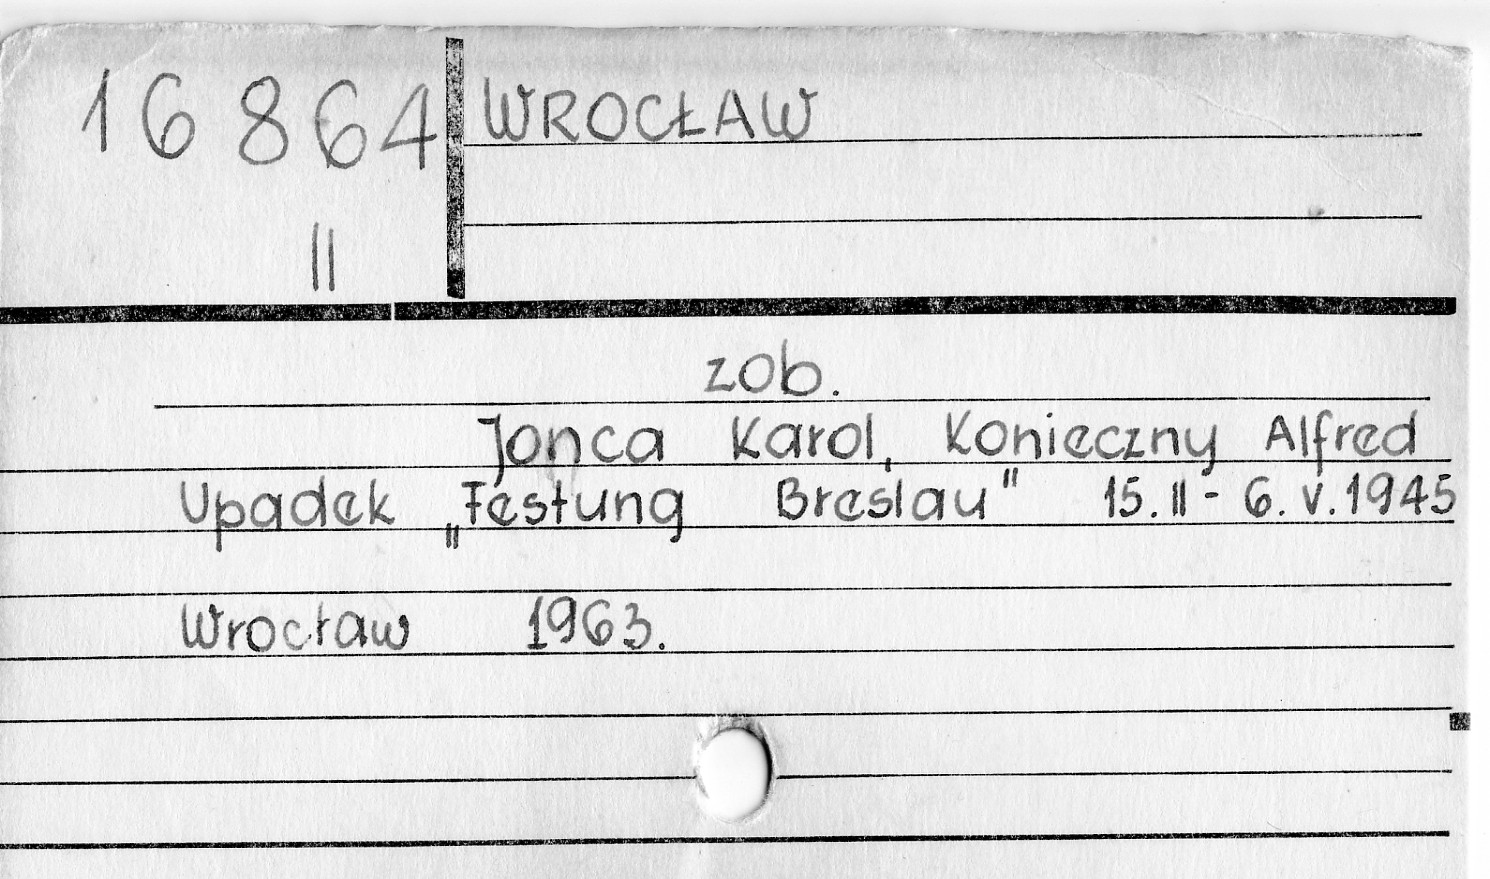 16 864
II
WROCŁAW
zob.
Jonca Karol, Konieczny Alfred
Upadek „Festung Breslau" 15.II - 6.V.1945
Wrocław 1963.